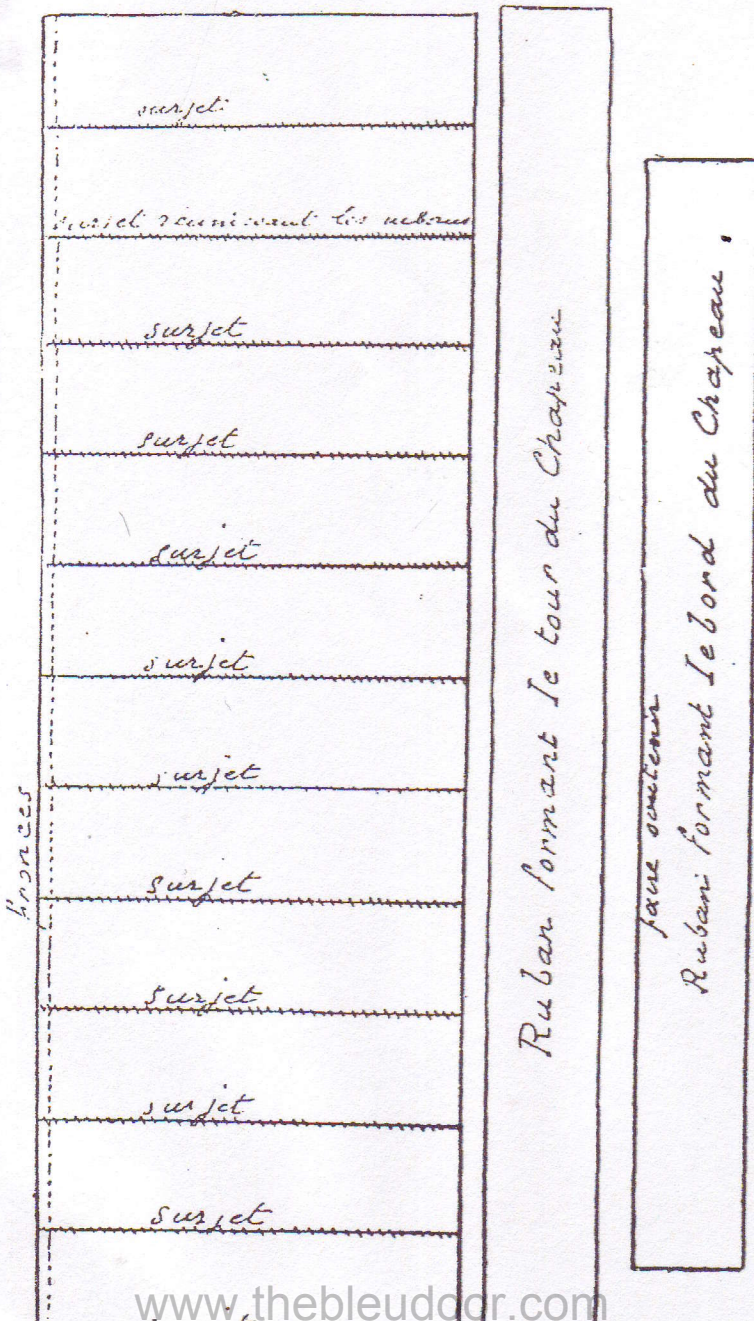 surjet
surjet réunissant les rubans
surjet
surjet
surjet
surjet
surjet
surjet
surjet
surjet
surjet
fronces
Ruban formant le tour du Chapeau
faire soutenir
Ruban formant le bord du Chapeau.
www.thebleudoor.com